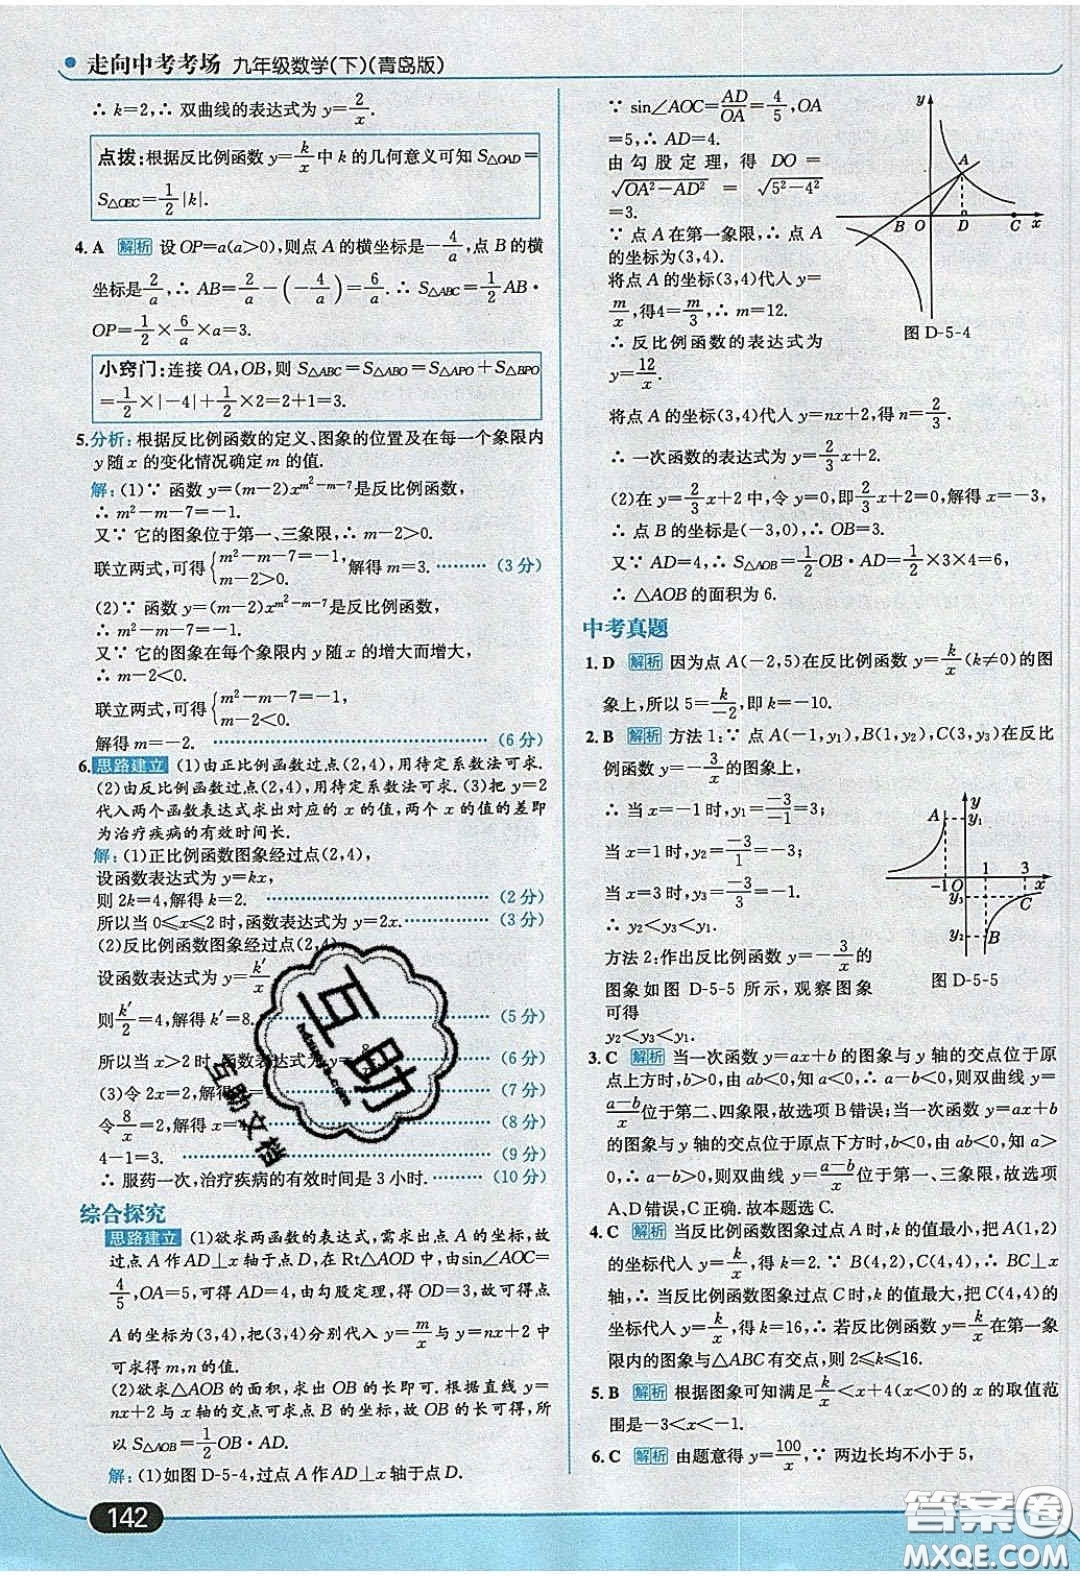 走向中考考场 九年级数学(下)(青岛版)
∴ k=2,∴ 双曲线的表达式为 y=2/x.
点拨:根据反比例函数 y=k/x 中 k 的几何意义可知 S△OAD=
S△OEC=1/2|k|.
4. A 解析 设 OP=a(a>0),则点 A 的横坐标是-4/a,点 B 的横
坐标是2/a,∴ AB=2/a-(-4/a)=6/a.∴ S△ABC=1/2AB·
OP=1/2×6/a×a=3.
小窍门:连接 OA,OB,则 S△ABC=S△ABO=S△APO+S△BPO
=1/2×|-4|+1/2×2=2+1=3.
5.分析:根据反比例函数的定义、图象的位置及在每一个象限内
y 随 x 的变化情况确定 m 的值.
解:(1)∵ 函数 y=(m-2)x^(m²-m-7)是反比例函数,
∴ m²-m-7=-1.
又∵ 它的图象位于第一、三象限,∴ m-2>0.
联立两式,可得{m²-m-7=-1, m-2>0. 解得 m=3. ……… (3 分)
(2)∵ 函数 y=(m-2)x^(m²-m-7)是反比例函数,
∴ m²-m-7=-1.
又∵ 它的图象在每个象限内 y 随 x 的增大而增大,
∴ m-2<0.
联立两式,可得{m²-m-7=-1, m-2<0.
解得 m=-2. ……… (6 分)
6.思路建立 (1)由正比例函数过点(2,4),用待定系数法可求.
(2)由反比例函数过点(2,4),用待定系数法可求.(3)把 y=2
代入两个函数表达式求出对应的 x 的值,两个 x 的值的差即
为治疗疾病的有效时间长.
解:(1)正比例函数图象经过点(2,4),
设函数表达式为 y=kx,
则 2k=4,解得 k=2. ……… (2 分)
所以当 0≤x≤2 时,函数表达式为 y=2x. ……… (3 分)
(2)反比例函数图象经过点(2,4),
设函数表达式为 y=k′/x
则k′/2=4,解得 k′=8. ……… (5 分)
所以当 x>2 时,函数表达式为 y=8 ……… (6 分)
(3)令 2x=2,解得 ……… (7 分)
令8/x=2,解得 x=4 ……… (8 分)
4-1=3. ……… (9 分)
∴ 服药一次,治疗疾病的有效时间是 3 小时. ……… (10 分)
综合探究
思路建立 (1)欲求两函数的表达式,需求出点 A 的坐标,故
过点 A 作 AD⊥x 轴于点 D,在 Rt△AOD 中,由 sin∠AOC=
4/5,OA=5,可得 AD=4,由勾股定理,得 DO=3,故可得点
A 的坐标为(3,4),把(3,4)分别代入 y=m/x与 y=nx+2 中
可求得 m,n 的值.
(2)欲求△AOB 的面积,求出 OB 的长即可.根据直线 y=
nx+2 与 x 轴的交点可求点 B 的坐标,故 OB 的长可得,所
以 S△AOB=1/2OB·AD.
解:(1)如图 D-5-4,过点 A 作 AD⊥x 轴于点 D.
142
∵ sin∠AOC=AD/OA=4/5,OA
=5,∴ AD=4.
由勾股定理,得 DO=
√(OA²-AD²) = √(5²-4²)
=3.
∵ 点 A 在第一象限,∴ 点 A
的坐标为(3,4).
将点 A 的坐标(3,4)代人 y=
m/x,得4=m/3,∴ m=12.
∴ 反比例函数的表达式为
y=12/x.
y
A
B
O
D
C
x
图 D-5-4
将点 A 的坐标(3,4)代人 y=nx+2,得 n=2/3.
∴ 一次函数的表达式为 y=2/3x+2.
(2)在 y=2/3x+2 中,令 y=0,即2/3x+2=0,解得 x=-3,
∴ 点 B 的坐标是(-3,0),∴ OB=3.
又∵ AD=4,∴ S△AOB=1/2OB·AD=1/2×3×4=6,
∴ △AOB 的面积为 6.
中考真题
1. D 解析 因为点 A(-2,5)在反比例函数 y=k/x(k≠0)的图
象上,所以 5=k/-2,即 k=-10.
2. B 解析 方法 1:∵ 点 A(-1,y₁),B(1,y₂),C(3,y₃)在反比
例函数 y=-3/x的图象上,
∴ 当 x=-1 时,y₁=-3/-1=3;
当 x=1 时,y₂=-3/1=-3;
当 x=3 时,y₃=-3/3=-1.
∴ y₂<y₃<y₁.
方法 2:作出反比例函数 y=-3/x的
图象如图 D-5-5 所示,观察图象
可得
y₂<y₃<y₁.
y
A
y₁
-1
O
1
3
x
y₃
C
y₂
B
图 D-5-5
3. C 解析 当一次函数 y=ax+b 的图象与 y 轴的交点位于原
点上方时,b>0,由 ab<0,知 a<0,∴ a-b<0,则双曲线 y=
a-b/x位于第二、四象限,故选项 B 错误;当一次函数 y=ax+b
的图象与 y 轴的交点位于原点下方时,b<0,由 ab<0,知 a>
0,∴ a-b>0,则双曲线 y=a-b/x位于第一、三象限,故选项
A、D 错误,C 正确.故本题选 C.
4. C 解析 当反比例函数图象过点 A 时,k 的值最小,把 A(1,2)
的坐标代人 y=k/x,得 k=2.∵ B(4,2),C(4,4),∴ BC⊥x
轴,∴ 当反比例函数图象过点 C 时,k 的值最大,把 C(4,4)的
坐标代人 y=k/x,得 k=16,∴ 若反比例函数 y=k/x在第一象
限内的图象与△ABC 有交点,则 2≤k≤16.
5. B 解析 根据图象可知满足k/x<x+4(x<0)的 x 的取值范
围是-3<x<-1.
6. C 解析 由题意得 y=100/x,∵ 两边长均不小于 5,
互助
互助文档
答案圈
MXQE.COM